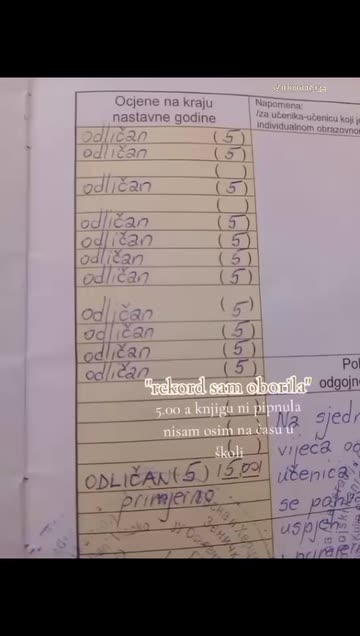 Ocjene na kraju
nastavne godine
Napomena:
/za učenika-učenicu koji
individualnom obrazovno
odličan (5)
odličan (5)
( )
odličan (5)
( )
odličan (5)
odličan (5)
odličan (5)
odličan (5)
odličan (5)
odličan (5)
odličan (5)
odličan (5)
"rekord sam oborila"
5.00 a knjigu ni pipnula
nisam osim na času u
školi
odgojno
Na sjedn
vijeća od
ODLIČAN (5) 15,00)
učenica
primjerno
se poh
uspjeh